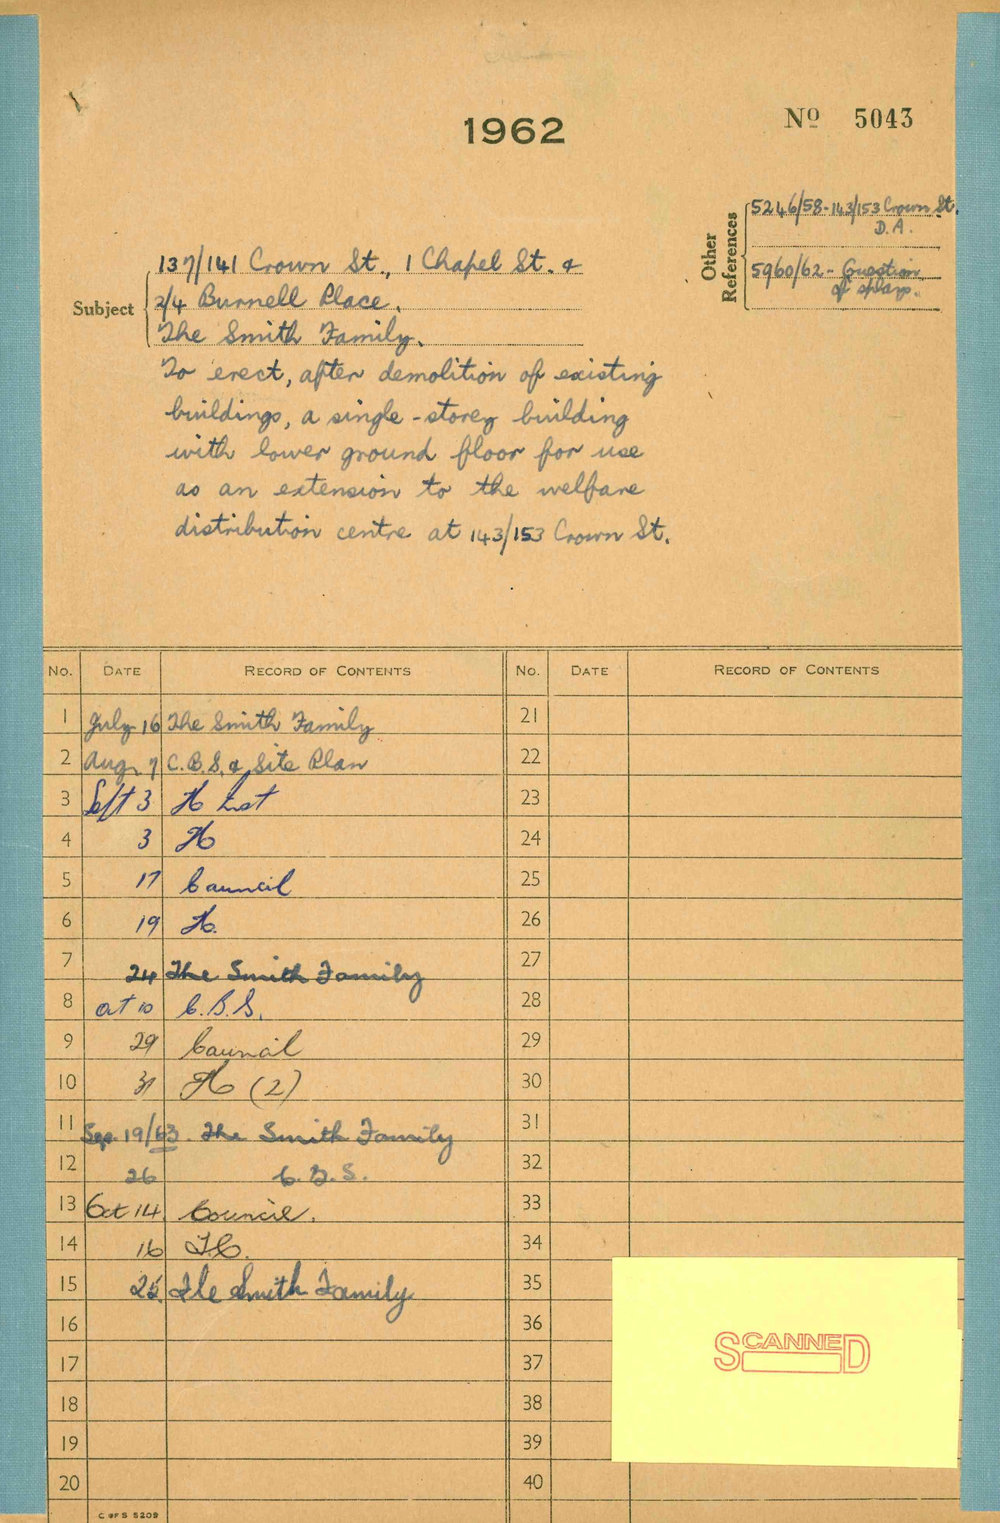 1962
Nº 5043
Other References
5246/58-143/153 Crown St.
D.A.
5960/62- Question
of splays.
Subject
137/141 Crown St., 1 Chapel St. &
2/4 Burnell Place.
The Smith Family.
To erect, after demolition of existing
buildings, a single-storey building
with lower ground floor for use
as an extension to the welfare
distribution centre at 143/153 Crown St.
No. DATE RECORD OF CONTENTS No. DATE RECORD OF CONTENTS
1 July 16 The Smith Family 21
2 Aug. 7 C.B.S. & Site Plan 22
3 Sept 3 23
4 3 24
5 17 Council 25
6 19 26
7 24 The Smith Family 27
8 Oct 10 C.B.S. 28
9 29 Council 29
10 31 (2) 30
11 Sep. 19/63. The Smith Family 31
12 26 C.B.S. 32
13 Oct 14. Council. 33
14 16 34
15 25. The Smith Family 35
16 36
17 37
18 38
19 39
20 40
SCANNED
C OF S 5209